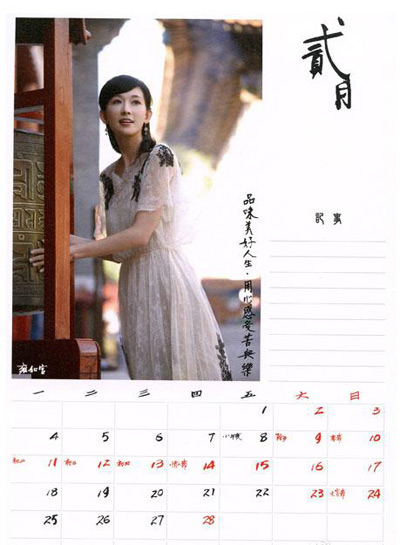 貳月
記事
品味美好人生·用心感受苦與樂
雍和宮
一 二 三 四 五 六 日
1 2 3
4 5 6 7 小年夜 8 除夕 9 春節 10
初二 11 初三 12 初四 13 情人節 14 15 16 17
18 19 20 21 22 23 元宵節 24
25 26 27 28